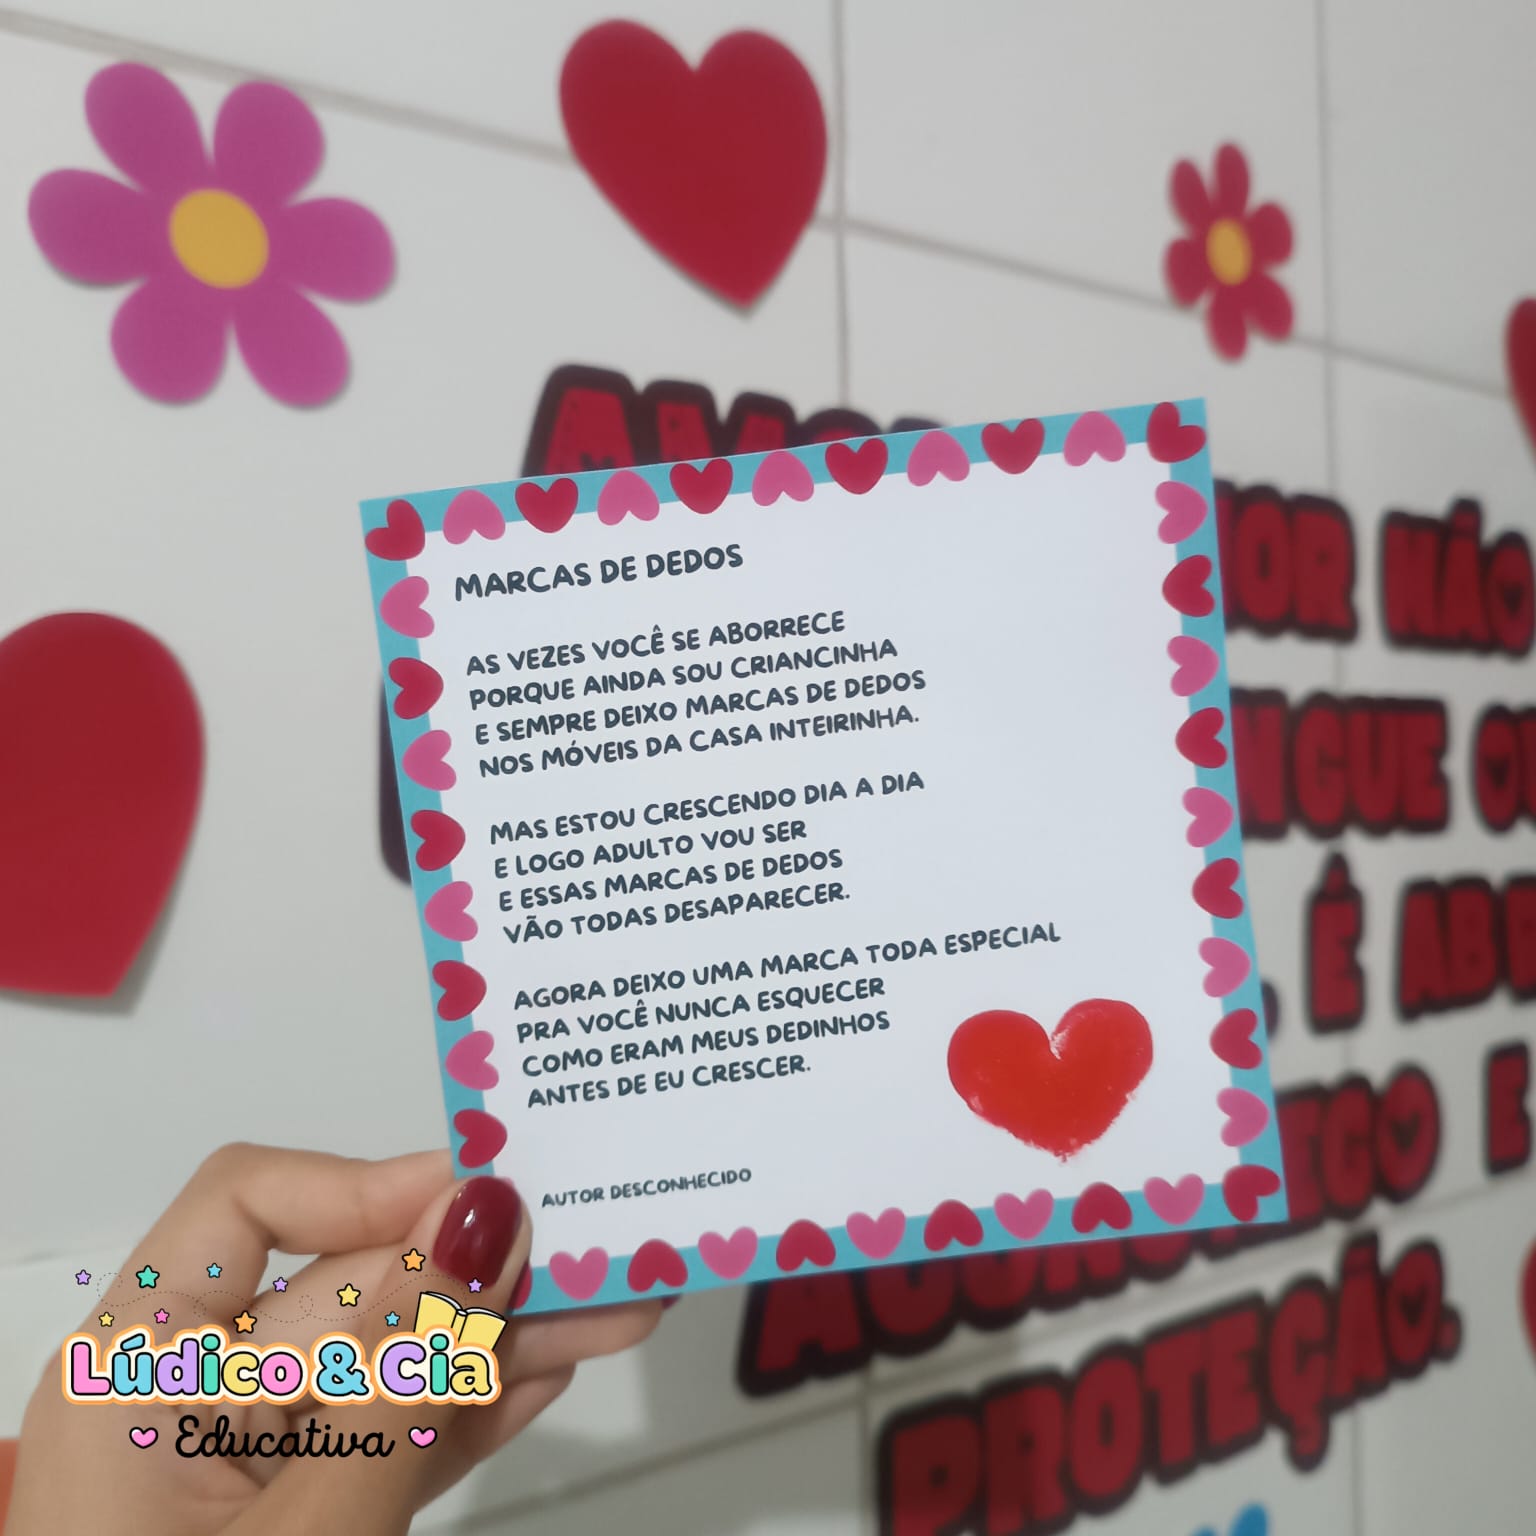 MARCAS DE DEDOS
AS VEZES VOCÊ SE ABORRECE
PORQUE AINDA SOU CRIANCINHA
E SEMPRE DEIXO MARCAS DE DEDOS
NOS MÓVEIS DA CASA INTEIRINHA.
MAS ESTOU CRESCENDO DIA A DIA
E LOGO ADULTO VOU SER
E ESSAS MARCAS DE DEDOS
VÃO TODAS DESAPARECER.
AGORA DEIXO UMA MARCA TODA ESPECIAL
PRA VOCÊ NUNCA ESQUECER
COMO ERAM MEUS DEDINHOS
ANTES DE EU CRESCER.
AUTOR DESCONHECIDO
NÃO
É
E
PROTEÇÃO.
Lúdico & Cia
Educativa